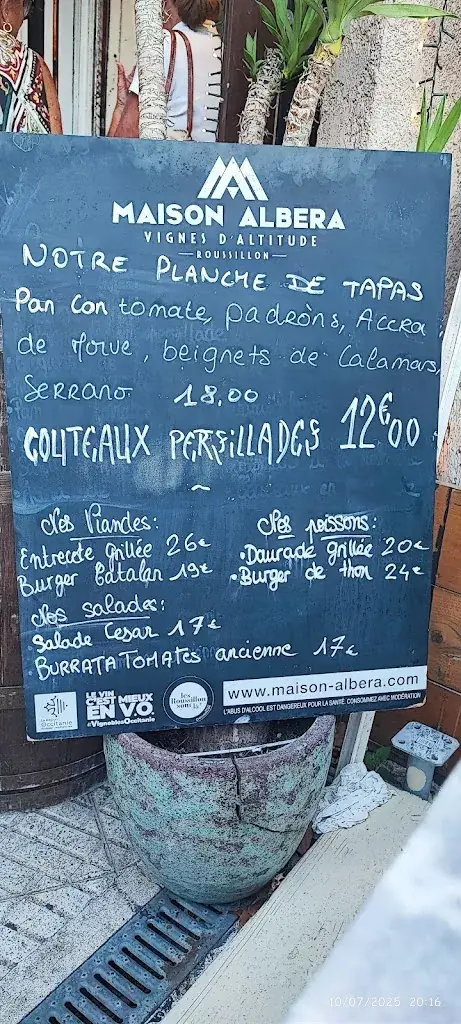 MAISON ALBERA
VIGNES D'ALTITUDE
ROUSSILLON
NOTRE PLANCHE DE TAPAS
Pan Con tomate, padròns, Accra
de Morue, beignets de Calamars,
SERRANO 18.00
COUTEAUX PERSILLADES 12€00
~
Nos Viandes:
Entrecote grillée 26€
Burger Catalan 19€
Nos poissons:
• Daurade grillée 20€
• Burger de thon 24€
Nos salades:
Salade Cesar 17€
BURRATA TOMATES ancienne 17€
Occitanie
LE VIN
C'EST MIEUX
EN V.O.
#VignoblesOccitanie
les
Roussillon
sont là!
www.maison-albera.com
L'ABUS D'ALCOOL EST DANGEREUX POUR LA SANTÉ. CONSOMMEZ AVEC MODÉRATION
10/07/2025 20:16